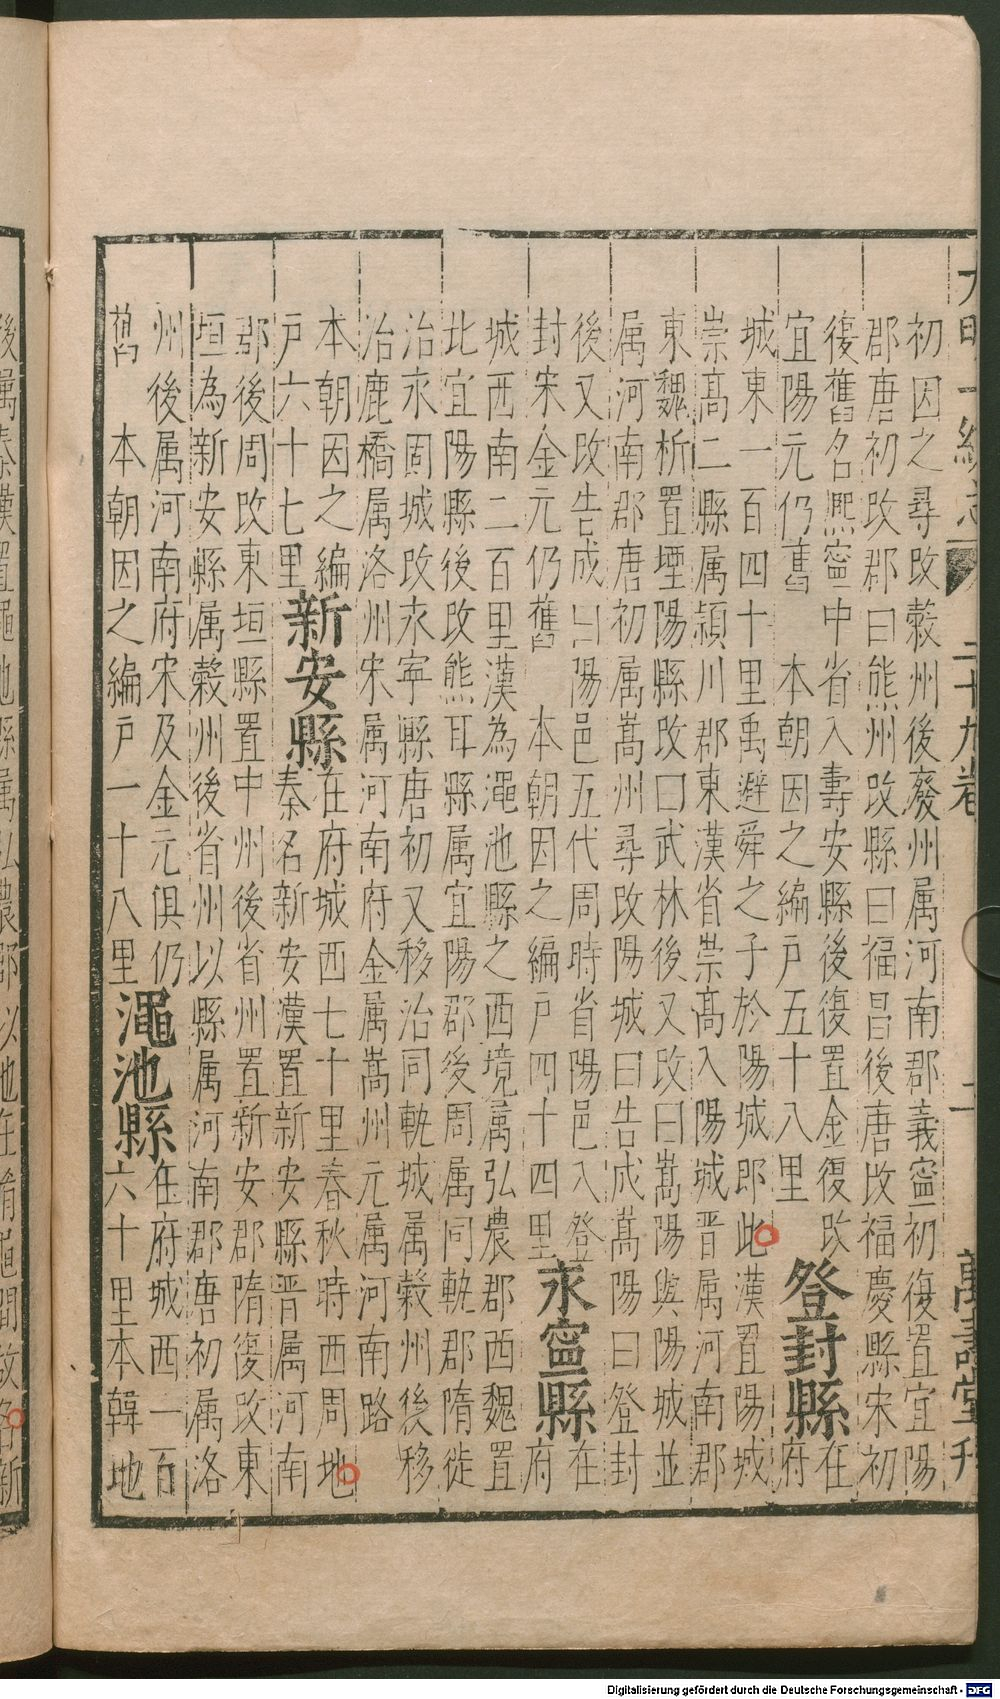 大明一統志 二十九卷 二 萬壽堂刋
初因之尋改穀州後廢州属河南郡義寧初復置宜陽
郡唐初改郡曰熊州改縣曰福昌後唐改福慶縣宋初
復舊名熙寧中省入壽安縣後復置金復改
宜陽元仍舊　本朝因之編戶五十八里
登封縣
在府
城東一百四十里禹避舜之子於陽城即此漢置陽城
崇高二縣属潁川郡東漢省崇高入陽城晉属河南郡
東魏析置堙陽縣改曰武林後又改曰嵩陽與陽城並
属河南郡唐初属嵩州尋改陽城曰告成嵩陽曰登封
後又改告成曰陽邑五代周時省陽邑入登
封宋金元仍舊　本朝因之編戶四十四里
永寧縣
在府
城西南二百里漢為澠池縣之西境属弘農郡西魏置
北宜陽縣後改熊耳縣属宜陽郡後周属同軌郡隋徙
治永固城改永寧縣唐初又移治同軌城属穀州後移
治鹿橋属洛州宋属河南府金属嵩州元属河南路
本朝因之編
戶六十七里
新安縣
在府城西七十里春秋時西周地
秦名新安漢置新安縣晉属河南
郡後周改東垣縣置中州後省州置新安郡隋復改東
垣為新安縣属穀州後省州以縣属河南郡唐初属洛
州後属河南府宋及金元俱仍
舊　本朝因之編戶一十八里
澠池縣
在府城西一百
六十里本韓地
後属秦漢置澠池縣属弘農郡以地在崤澠間故名新
Digitalisierung gefördert durch die Deutsche Forschungsgemeinschaft - DFG